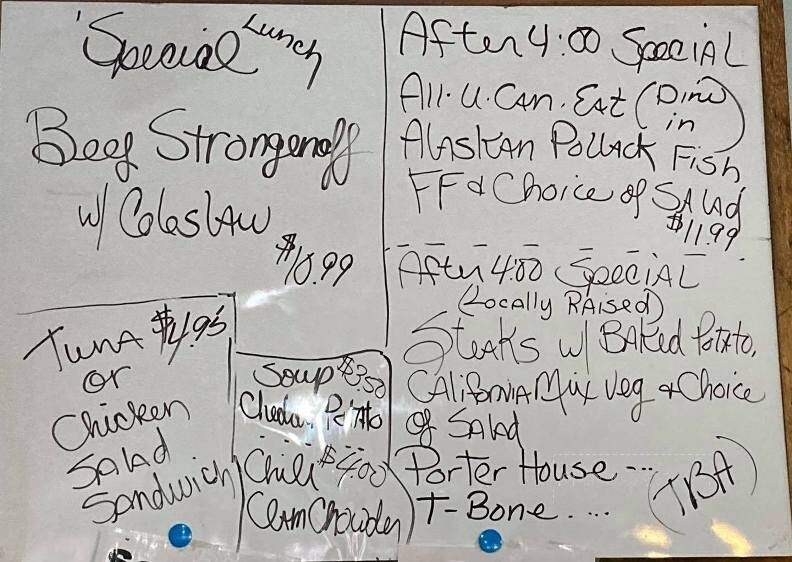 Special Lunch
Beef Strongenoff
w/ Coleslaw
$10.99
Tuna $4.95
or
Chicken
Salad
Sandwich
Soup $3.50
Chedar Potato
Chili $4.00
Clam Chowder
After 4:00 Special
All.U.Can.Eat (Dine in)
Alaskan Pollack Fish
FF & Choice of Salad
$11.99
After 4:00 Special
(Locally Raised)
Steaks w/ Baked Potato,
California Mix Veg & Choice
of Salad
Porter House ---
T-Bone .... (TBA)